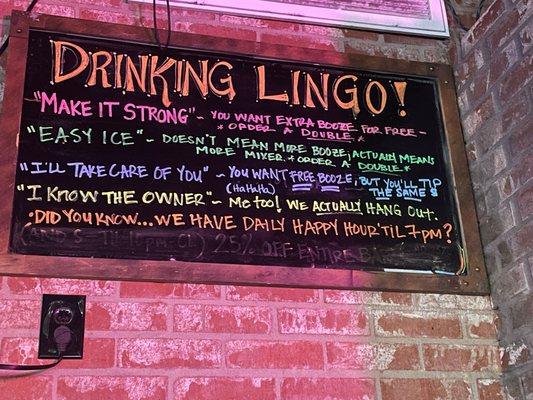 DRINKING LINGO!
"MAKE IT STRONG" ~ YOU WANT EXTRA BOOZE FOR FREE -
* ORDER A DOUBLE *
"EASY ICE" ~ DOESN'T MEAN MORE BOOZE; ACTUALLY MEANS
MORE MIXER * ORDER A DOUBLE *
"I'LL TAKE CARE OF YOU" ~ YOU WANT FREE BOOZE, BUT YOU'LL TIP
(HaHaHa) THE SAME $
"I KNOW THE OWNER" ~ Me too! WE ACTUALLY HANG OUT.
·DID YOU KNOW...WE HAVE DAILY HAPPY HOUR 'TIL 7PM?
25% OFF ENTIRE